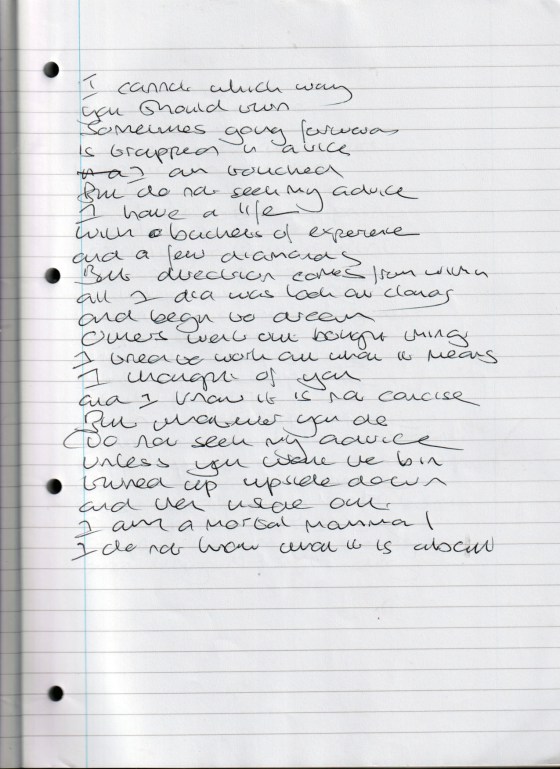 I cannot which way
you should turn
Sometimes going forwards
is trapped in a vice
I am touched
But do not seek my advice
I have a life
with buckets of experence
and a few diamonds
But direction comes from within
all I did was look at clouds
and begin to dream
Others went out bought things
I tread to work out what it means
I thought of you
and I know it is not concise
But whatever you do
Do not seek my advice
Unless you want to bin
turned up upside down
and then inside out
I am a mortal mammal
I do not know what it is about